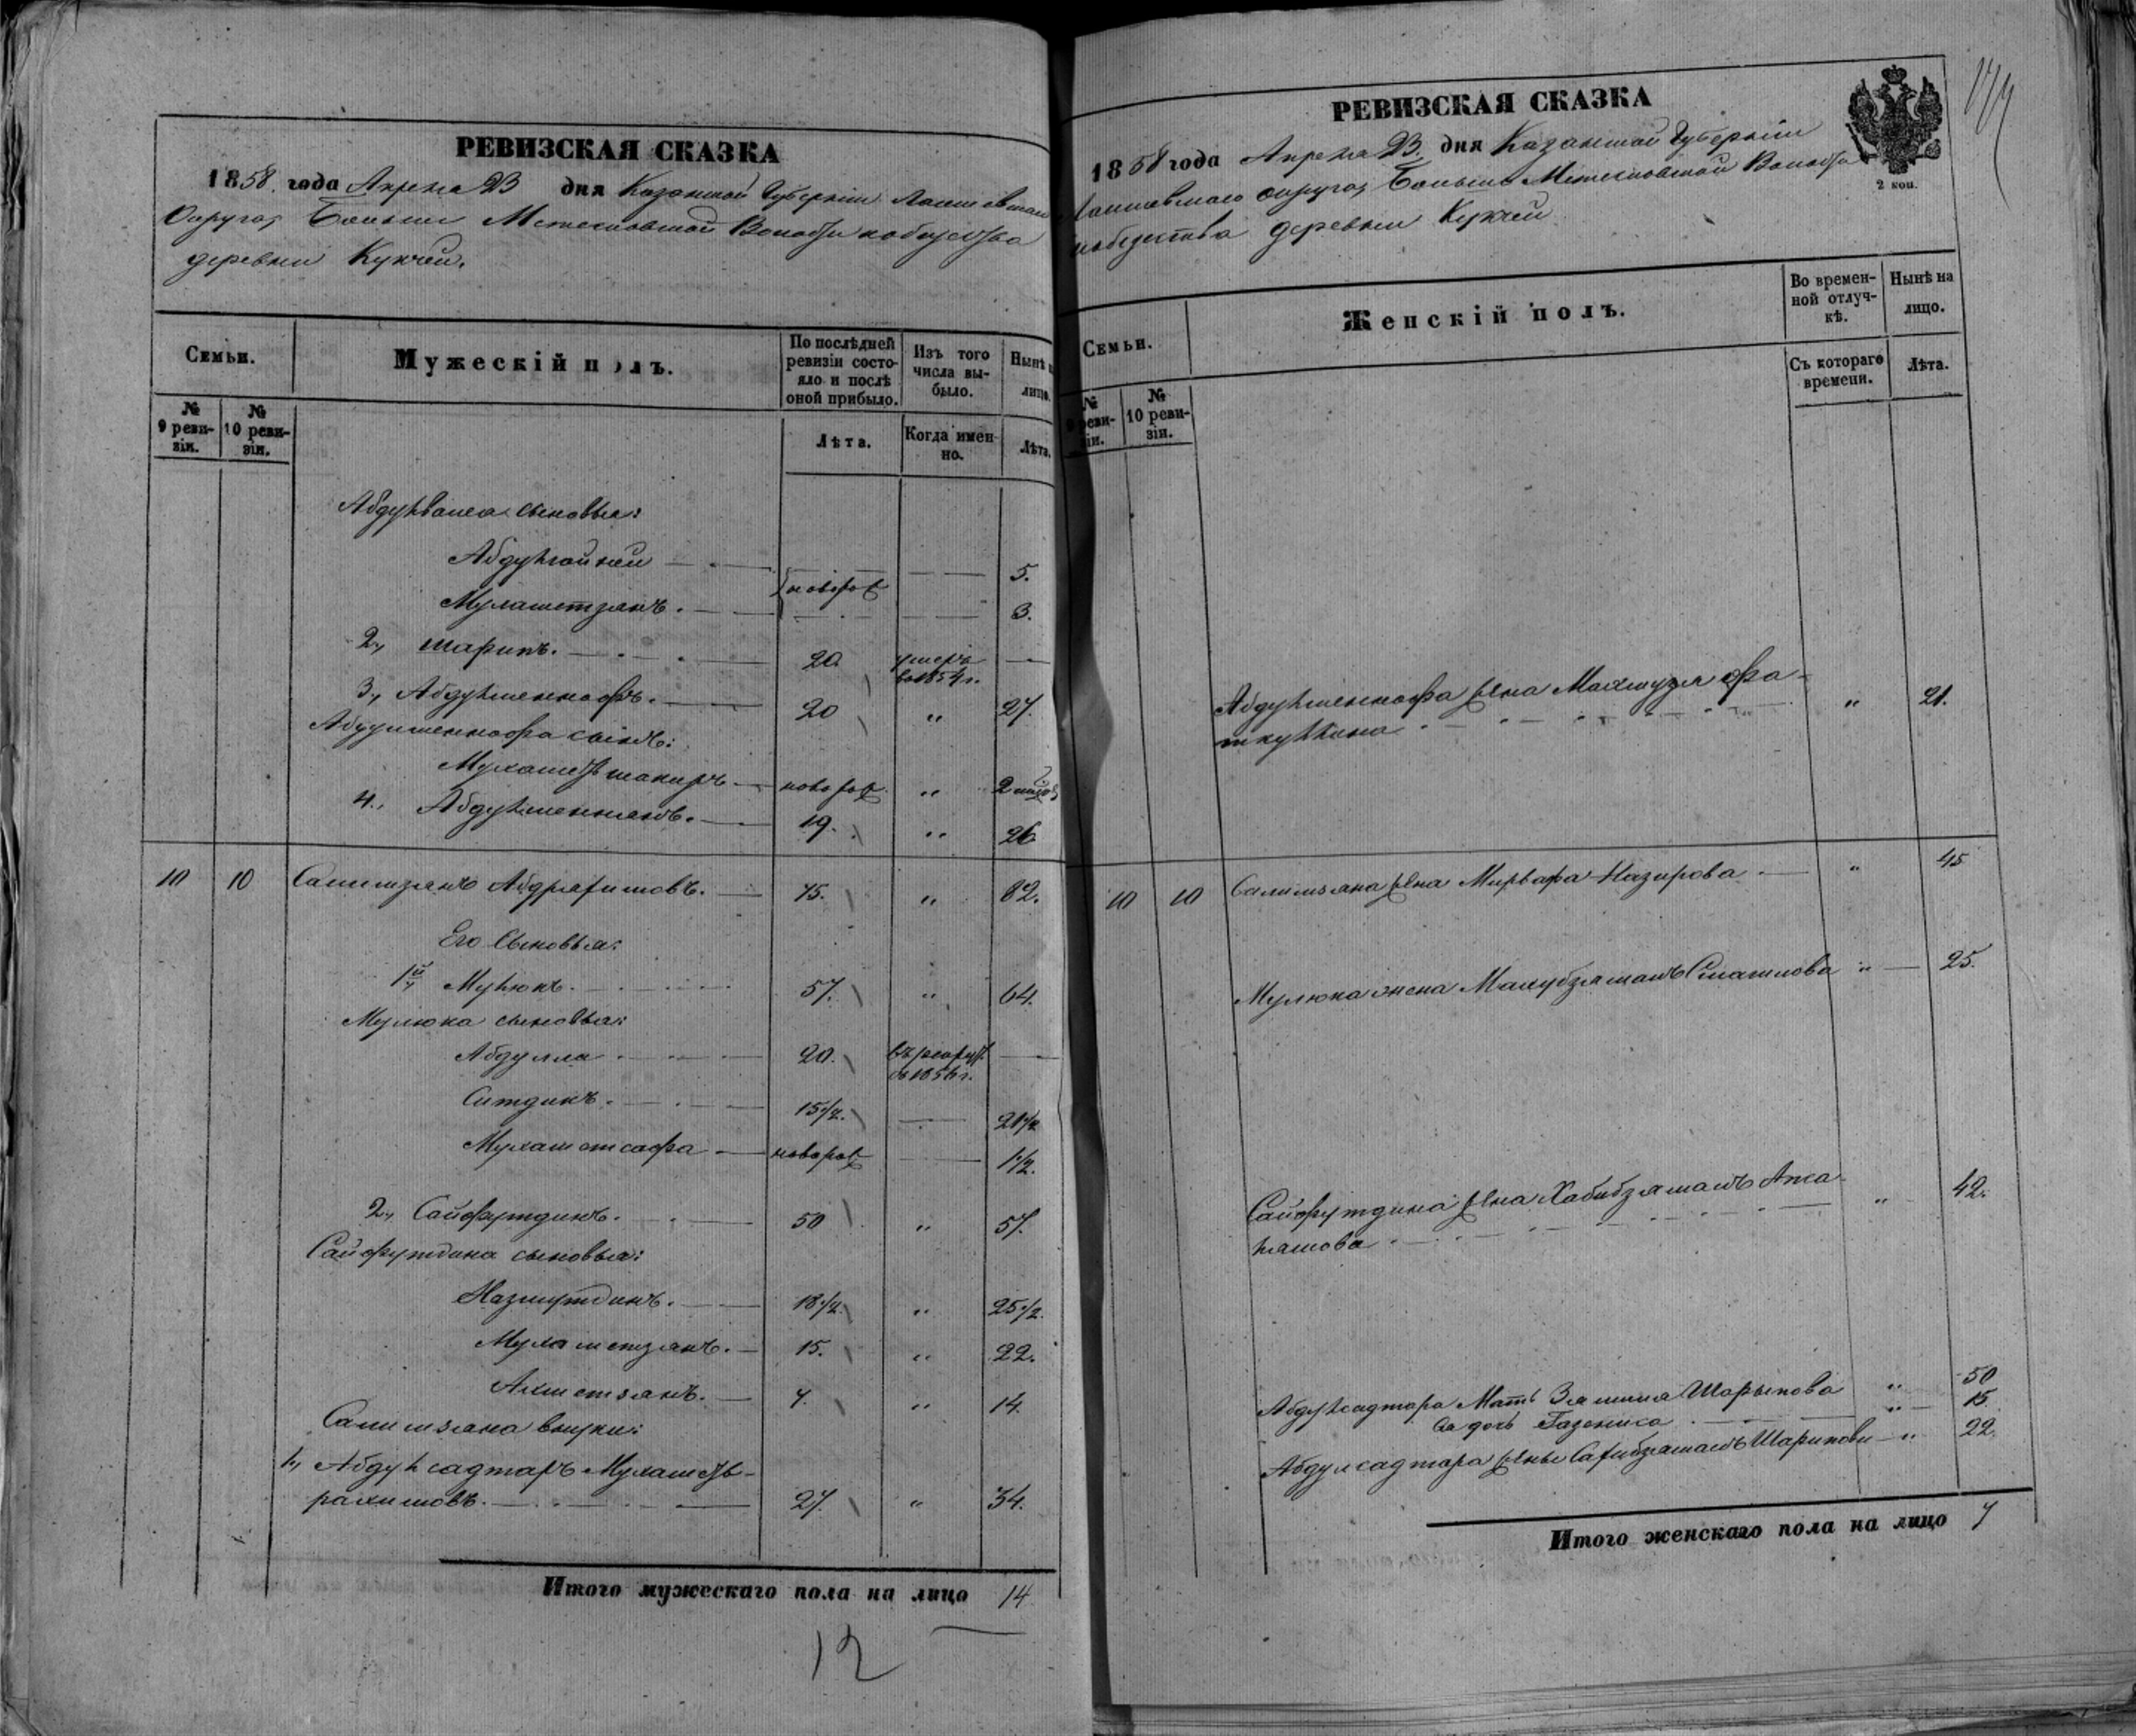 РЕВИЗСКАЯ СКАЗКА
1858 года Апреля 23 дня Казанской Губернии Лаишевскаго
Округа, Больше Метесковской Волости и общества
деревни Кукчей.
Семьи.
Мужескій полъ.
По послѣдней ревизіи состояло и послѣ оной прибыло.
Изъ того числа выбыло.
Нынѣ на лицо.
№ 9 ревизіи.
№ 10 ревизіи.
Лѣта.
Когда именно.
Лѣта.
Абдулвалея сыновья:
Абдул 5.
новорож
Мухаметзянъ. 3.
2, Шарипъ. 20 умеръ в 1854 г.
3, Абдулменнафъ. 20 " 27.
Абдулменнафа сынъ:
Мухаметшакиръ новорож " 2
4, Абдулменнянъ. 19. " 26
10 10 Салимзянъ Абдрафиковъ. 75. " 82.
Его Сыновья:
1й Мулюкъ. 57. " 64.
Мулюка сыновья:
Абдулла 20. въ рекрут. в 1856 г.
Ситдикъ. 15½. 21½
Мухаметсафа новорож 1½.
2, Сайфутдинъ. 50 " 57.
Сайфутдина сыновья:
Назмутдинъ. 18½. " 25½.
Мухаметзянъ. 15. " 22.
Ахметзянъ. 7. " 14.
Салимзяна внуки:
1, Абдулсадтаръ Мухаметь-
рахимовъ. 27. " 34.
Итого мужескаго пола на лицо 14
12
РЕВИЗСКАЯ СКАЗКА
2 коп.
1858 года Апреля 23 дня Казанской Губерніи
Лаишевскаго округа, Больше Метесковской Волости
и общества деревни Кукчей
Семьи.
Женскій полъ.
Во временной отлучкѣ.
Нынѣ на лицо.
№ 9 ревизіи.
№ 10 ревизіи.
Съ котораго времени.
Лѣта.
Абдулменнафа жена Махмузя Фа-
ткуллина " 21.
10 10 Салимзяна жена Мирвафа Назирова " 45
Мулюка жена Махубзямалъ Смаилова " 25.
Сайфутдина жена Хабибзямалъ " 42.
Абдулсадтара Мать Зямиля Шарыпова " 50
Ея дочь " 15
Абдулсадтара жены Сахибзямалъ Шарипова " 22.
Итого женскаго пола на лицо 7